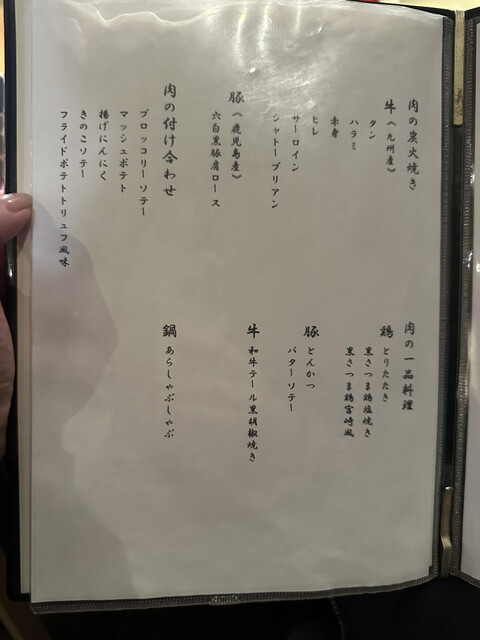 肉の炭火焼き
牛《九州産》
タン
ハラミ
赤身
ヒレ
サーロイン
シャトーブリアン
豚《鹿児島産》
六白黒豚肩ロース
肉の付け合わせ
ブロッコリーソテー
マッシュポテト
揚げにんにく
きのこソテー
フライドポテトトリュフ風味
肉の一品料理
鶏 とりたたき
黒さつま鶏塩焼き
黒さつま鶏宮崎風
豚 とんかつ
バターソテー
牛 和牛テール黒胡椒焼き
鍋 あらしゃぶしゃぶ